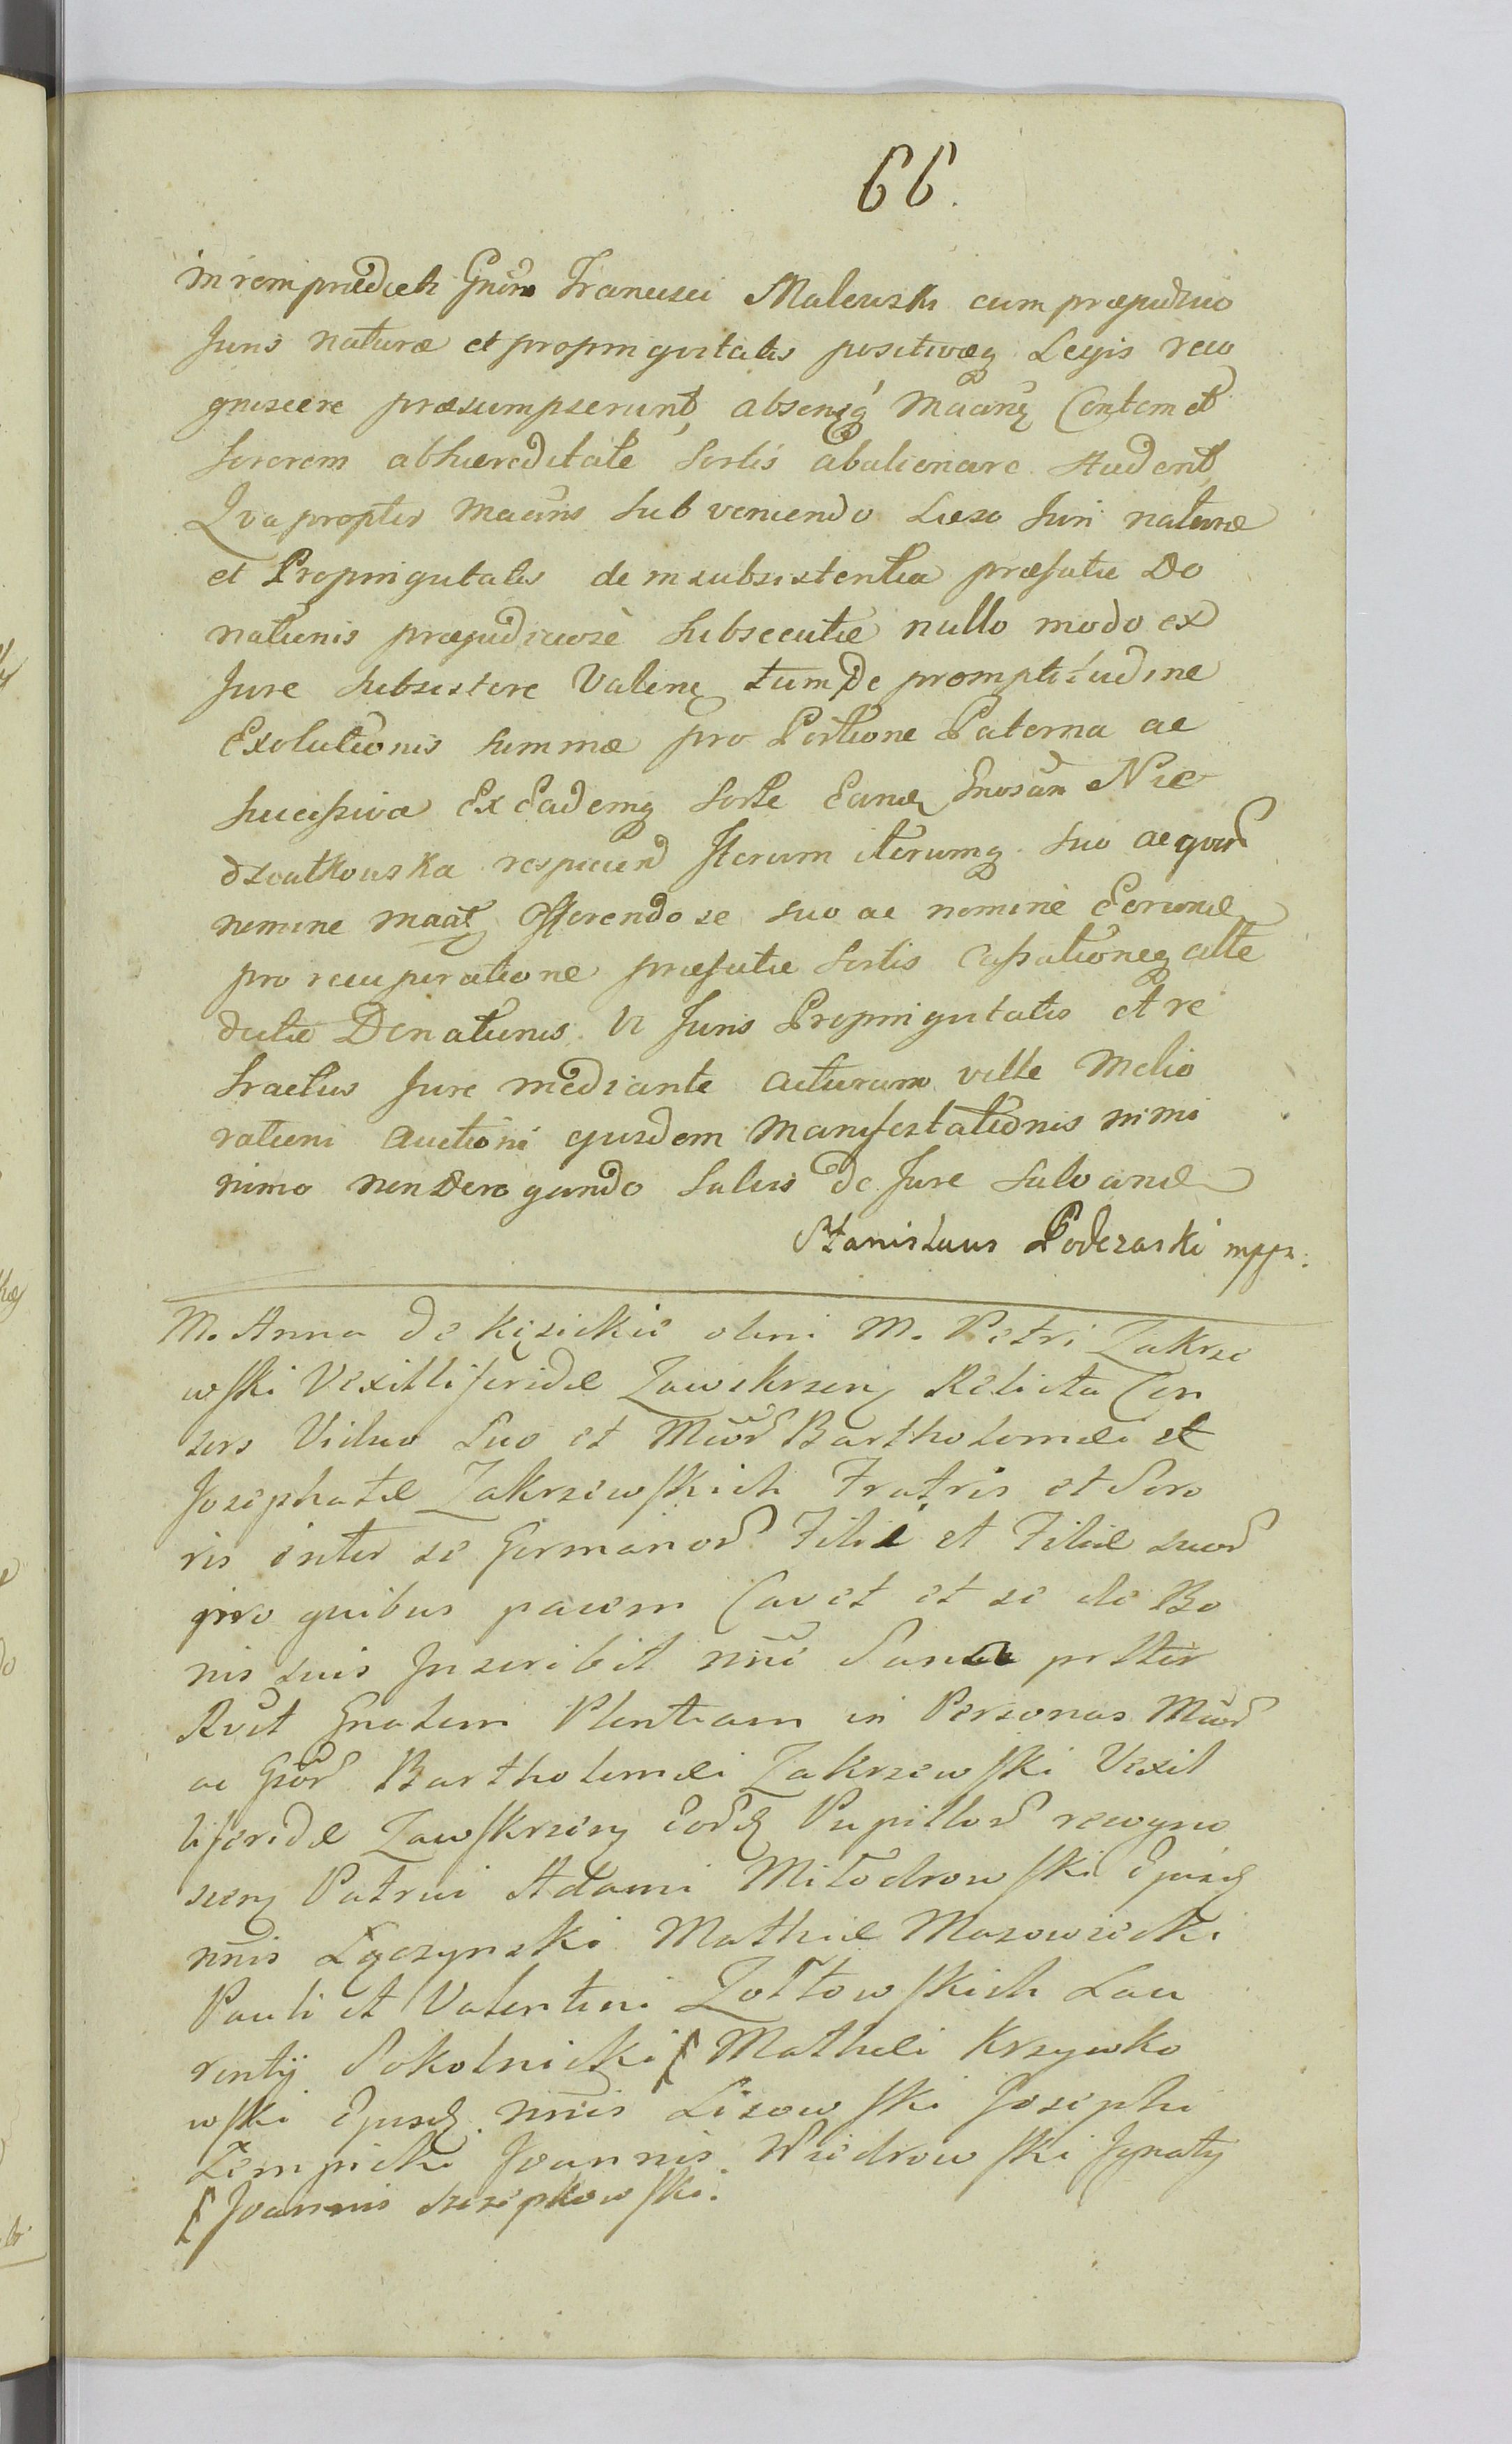 66.
in rem prædicti Gnosi Francisci Malewski cum præjudicio
Juris naturæ et propinqvitatis positivæq Legis reco
gniscere præsumpserunt, absenq Maanq Contem et
sororem ab hæreditate sortis abalienare student,
Qva propter Maans sub veniendo Læso Juri naturæ
et Propinqvitatis de in subsistentia præfatæ Do
nationis præjudiciose subsecutæ nullo modo ex
Jure subsistere Valenq tum de promptitudine
Exolutionis summæ pro Portione Paterna ac
succissiva Ex Eademq sorte Eand Gnosam Nie
dzwałkowska respiciend Iterum iterumq suo ac qvor
nomine Maat offerendo se suo ac nomine Eorund
pro recuperatione præfatæ sortis Cassationeq alte
dictæ Donationis Vi Juris Propinqvitatis et re
tractus Jure mediante acturum velle Melio
rationi auctioni ejusdem Manifestationis nimi
nimo non derogando Salvis de Jure salvand
Stanislaus Podczaski mpp.
M. Anna de Kęsickie olim M. Petri Zakrze
wski Vexilliferidæ Zawskrzen Relicta Con
sors Vidua Suo et Mcor Bartholomæi et
Josephatæ Zakrzewskich Fratris et Soro
ris inter se Germanor Filii et Filiæ suor
pro quibus pacem Cavet et se de Bo
nis suis Inscribit nne Sana pritter
Rvit Gnalem Plentiam in Personas Mcor
ac Gsor Bartholomæi Zakrzewski Vexil
liferidæ Zawskrzen Eord Pupillor recogno
scen Patrui Adami Miłodrowski Ejusd
nnis Łączynski Mathiæ Mazowiecki
Pauli et Valentini Zołtowskich Lau
rentij Sokolnicki Mathæi Krzywko
wski Ejusd nnis Lisowski Josephi
Lempicki Joannis Wiedrowski Ignaty
Joannis Szczepkowski.